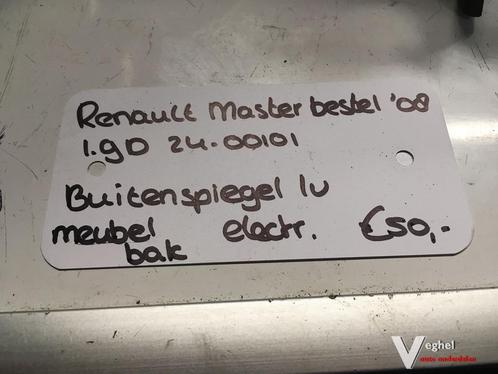 Renault Master bestel '08
1.9D 24-00101
Buitenspiegel lv
meubel electr. €50,-
bak
Veghel
auto onderdelen